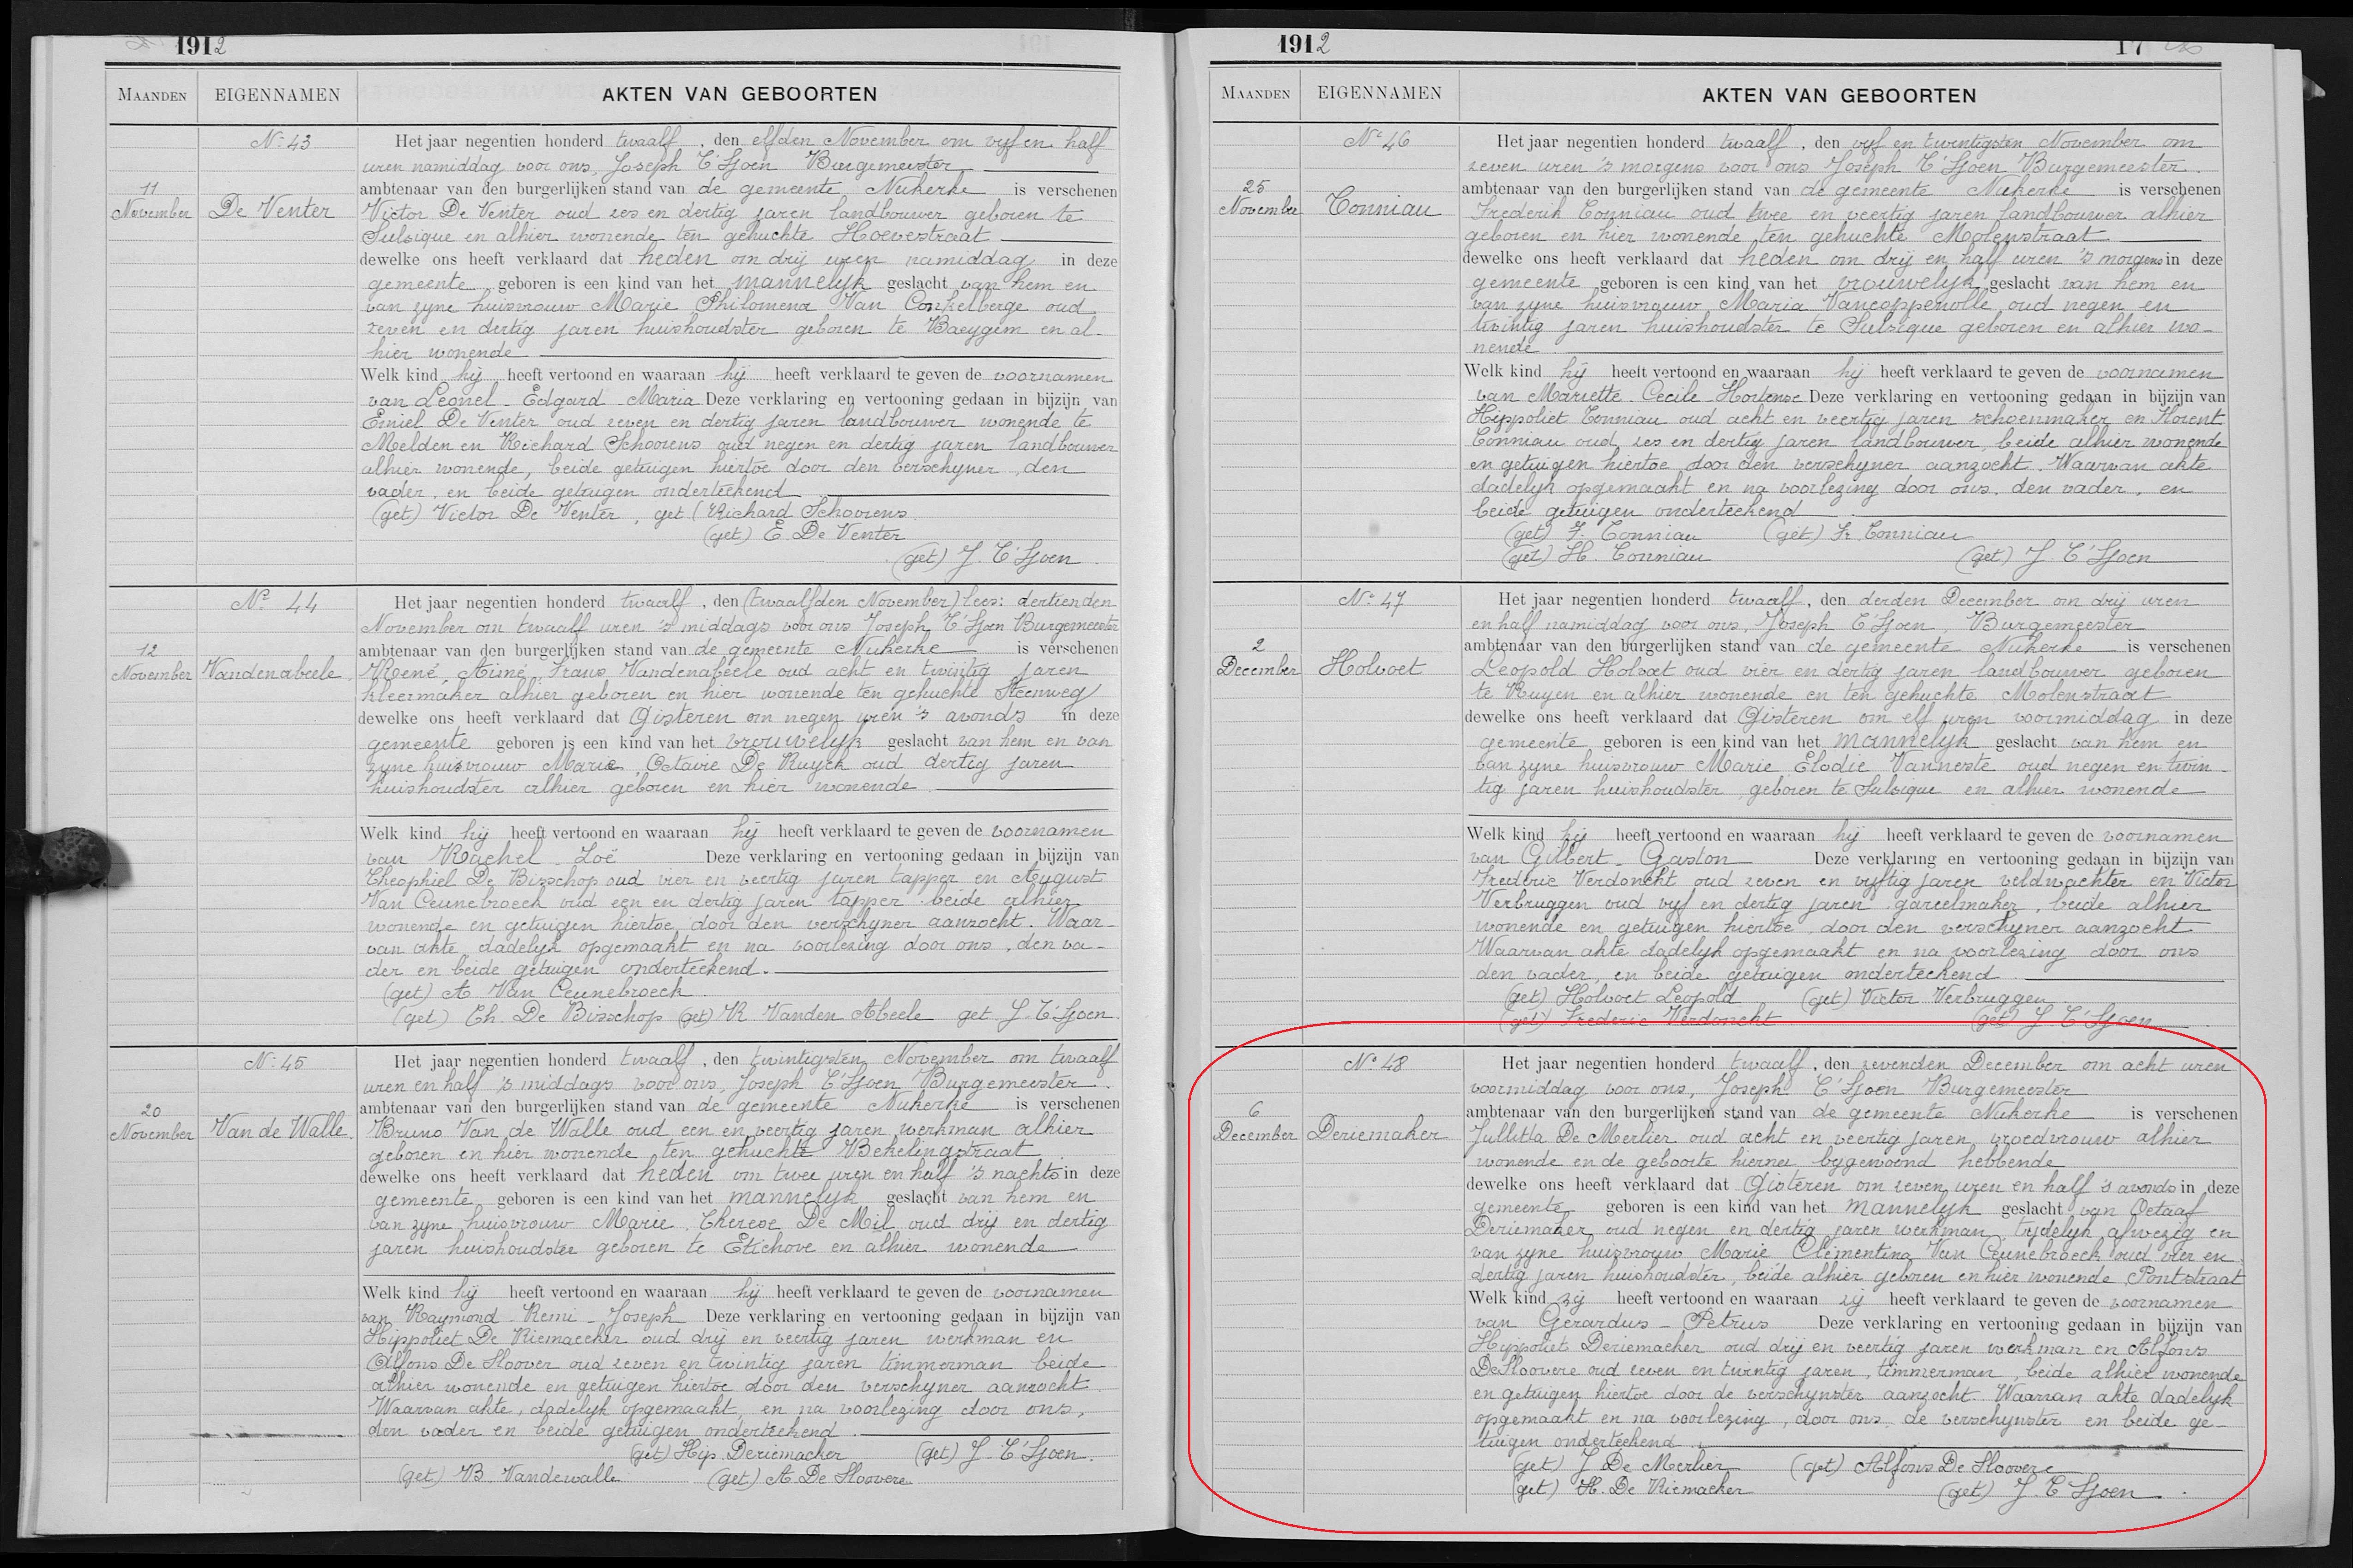 1912
MAANDEN EIGENNAMEN AKTEN VAN GEBOORTEN
Nº 43
11 November
De Venter
Het jaar negentien honderd twaalf, den elfden November om vijf en half
uren namiddag voor ons, Joseph T'Sjoen Burgemeester
ambtenaar van den burgerlijken stand van de gemeente Nukerke is verschenen
Victor De Venter oud zes en dertig jaren landbouwer geboren te
Sulsique en alhier wonende ten gehuchte Hoevestraat
dewelke ons heeft verklaard dat heden om drij uren namiddag in deze
gemeente geboren is een kind van het mannelyk geslacht van hem en
van zyne huisvrouw Marie Philomena Van Conkelberge oud
zeven en dertig jaren huishoudster geboren te Baeygem en al-
hier wonende
Welk kind hij heeft vertoond en waaraan hij heeft verklaard te geven de voornamen
van Leonel - Edgard - Maria Deze verklaring en vertooning gedaan in bijzijn van
Emiel De Venter oud zeven en dertig jaren landbouwer wonende te
Melden en Richard Schoorens oud negen en dertig jaren landbouwer
alhier wonende, beide getuigen hiertoe door den verschyner, den
vader, en beide getuigen onderteekend
(get) Victor De Venter, get (Richard Schoorens
(get) E. De Venter
(get) J. T'Sjoen
Nº 44
12 November
Vandenabeele
Het jaar negentien honderd twaalf, den (twaalfden November) lees: dertienden
November om twaalf uren 's middags voor ons Joseph T'Sjoen Burgemeester
ambtenaar van den burgerlijken stand van de gemeente Nukerke is verschenen
René, Aimé, Frans Vandenabeele oud acht en twintig jaren
kleermaker alhier geboren en hier wonende ten gehuchte Steenweg
dewelke ons heeft verklaard dat Gisteren om negen uren 's avonds in deze
gemeente geboren is een kind van het vrouwelyk geslacht van hem en van
zyne huisvrouw Marie, Octavie De Ruyck oud dertig jaren
huishoudster alhier geboren en hier wonende
Welk kind hij heeft vertoond en waaraan hij heeft verklaard te geven de voornamen
van Rachel - Zoë Deze verklaring en vertooning gedaan in bijzijn van
Theophiel De Bisschop oud vier en veertig jaren tapper en August
Van Ceunebroeck oud een en dertig jaren tapper beide alhier
wonende en getuigen hiertoe door den verschyner aanzocht. Waar-
van akte, dadelyk opgemaakt en na voorlezing door ons, den va-
der en beide getuigen onderteekend.
(get) A Van Ceunebroeck
(get) Th. De Bisschop (get) R Vanden Abeele get J. T'Sjoen
Nº 45
20 November
Van de Walle
Het jaar negentien honderd twaalf, den twintigsten November om twaalf
uren en half 's middags voor ons, Joseph T'Sjoen Burgemeester
ambtenaar van den burgerlijken stand van de gemeente Nukerke is verschenen
Bruno Van de Walle oud een en veertig jaren werkman alhier
geboren en hier wonende ten gehuchte Bekelingstraat
dewelke ons heeft verklaard dat heden om twee uren en half 's nachts in deze
gemeente geboren is een kind van het mannelyk geslacht van hem en
van zyne huisvrouw Marie, Therese De Mil oud drij en dertig
jaren huishoudster geboren te Etichove en alhier wonende
Welk kind hij heeft vertoond en waaraan hij heeft verklaard te geven de voornamen
van Raymond - Remi - Joseph Deze verklaring en vertooning gedaan in bijzijn van
Hippoliet De Riemaecker oud drij en veertig jaren werkman en
Alfons De Sloover oud zeven en twintig jaren timmerman beide
alhier wonende en getuigen hiertoe door den verschyner aanzocht.
Waarvan akte, dadelyk opgemaakt, en na voorlezing door ons,
den vader en beide getuigen onderteekend.
(get) Hip. Deriemacker (get) J. T'Sjoen.
(get) B. Vandewalle (get) A. De Sloovere
1912 17
MAANDEN EIGENNAMEN AKTEN VAN GEBOORTEN
Nº 46
25 November
Tonniau
Het jaar negentien honderd twaalf, den vyf en twintigsten November om
zeven uren 's morgens voor ons Joseph T'Sjoen Burgemeester.
ambtenaar van den burgerlijken stand van de gemeente Nukerke is verschenen
Frederik Tonniau oud twee en veertig jaren landbouwer alhier
geboren en hier wonende ten gehuchte Molenstraat
dewelke ons heeft verklaard dat heden om drij en half uren 's morgens in deze
gemeente geboren is een kind van het vrouwelyk geslacht van hem en
van zyne huisvrouw Maria Vancoppenolle oud negen en
twintig jaren huishoudster te Sulsique geboren en alhier wo-
nende
Welk kind hij heeft vertoond en waaraan hij heeft verklaard te geven de voornamen
van Mariette - Cecile - Hortense Deze verklaring en vertooning gedaan in bijzijn van
Hippoliet Tonniau oud acht en veertig jaren schoenmaker en Florent
Tonniau oud zes en dertig jaren landbouwer, beide alhier wonende
en getuigen hiertoe door den verschyner aanzocht. Waarvan akte
dadelyk opgemaakt en na voorlezing door ons, den vader, en
beide getuigen onderteekend
(get) F. Tonniau (get) Fr. Tonniau
(get) H. Tonniau (get) J. T'Sjoen
Nº 47
2 December
Holvoet
Het jaar negentien honderd twaalf, den derden December om drij uren
en half namiddag voor ons, Joseph T'Sjoen, Burgemeester
ambtenaar van den burgerlijken stand van de gemeente Nukerke is verschenen
Leopold Holvoet oud vier en dertig jaren landbouwer geboren
te Ruyen en alhier wonende en ten gehuchte Molenstraat
dewelke ons heeft verklaard dat Gisteren om elf uren voormiddag in deze
gemeente geboren is een kind van het mannelyk geslacht van hem en
van zyne huisvrouw Marie Elodie Vanneste oud negen en twin-
tig jaren huishoudster geboren te Sulsique en alhier wonende
Welk kind hij heeft vertoond en waaraan hij heeft verklaard te geven de voornamen
van Gilbert - Gaston Deze verklaring en vertooning gedaan in bijzijn van
Frederic Verdonckt oud zeven en vyftig jaren veldwachter en Victor
Verbruggen oud vyf en dertig jaren gareelmaker, beide alhier
wonende en getuigen hiertoe door den verschyner aanzocht
Waarvan akte dadelyk opgemaakt en na voorlezing door ons
den vader, en beide getuigen onderteekend
(get) Holvoet Leopold (get) Victor Verbruggen
(get) Frederic Verdonckt (get) J. T'Sjoen
Nº 48
6 December
Deriemaker
Het jaar negentien honderd twaalf, den zevenden December om acht uren
voormiddag voor ons, Joseph T'Sjoen Burgemeester
ambtenaar van den burgerlijken stand van de gemeente Nukerke is verschenen
Jullitta De Merlier oud acht en veertig jaren vroedvrouw alhier
wonende en de geboorte hiernei bygewoond hebbende
dewelke ons heeft verklaard dat Gisteren om zeven uren en half 's avonds in deze
gemeente geboren is een kind van het mannelyk geslacht van Octaaf
Deriemaker oud negen en dertig jaren werkman, tydelyk afwezig en
van zyne huisvrouw Marie Clementina Van Ceunebroeck oud vier en
dertig jaren huishoudster, beide alhier geboren en hier wonende, Pontstraat
Welk kind zij heeft vertoond en waaraan zij heeft verklaard te geven de voornamen
van Gerardus - Petrus Deze verklaring en vertooning gedaan in bijzijn van
Hippoliet Deriemacker oud drij en veertig jaren werkman en Alfons
De Sloovere oud zeven en twintig jaren, timmerman, beide alhier wonende
en getuigen hiertoe door de verschynster aanzocht. Waarvan akte dadelyk
opgemaakt en na voorlezing, door ons, de verschynster en beide ge-
tuigen onderteekend
(get) J De Merlier (get) Alfons De Sloovere
(get) H. De Riemacker (get) J. T'Sjoen